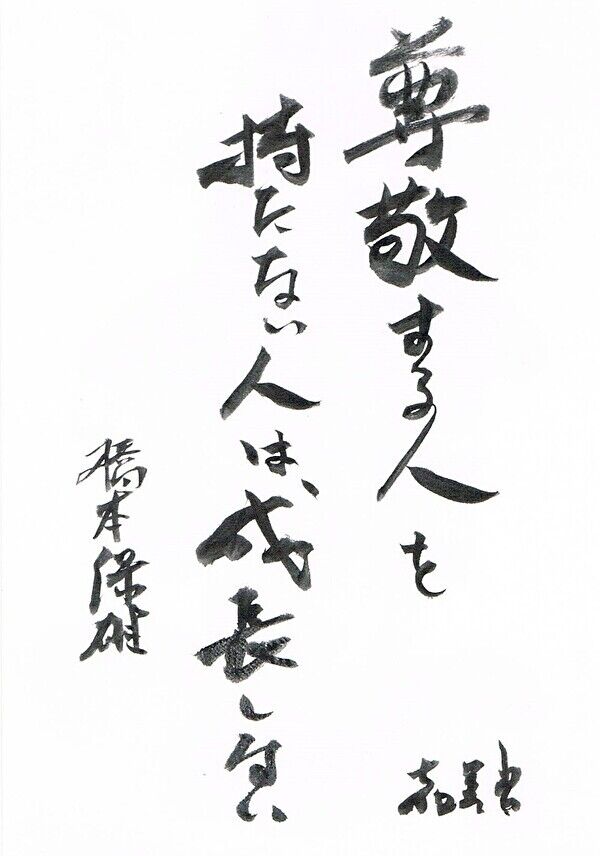 尊敬する人を
持たない人は、成長しない
橋本保雄